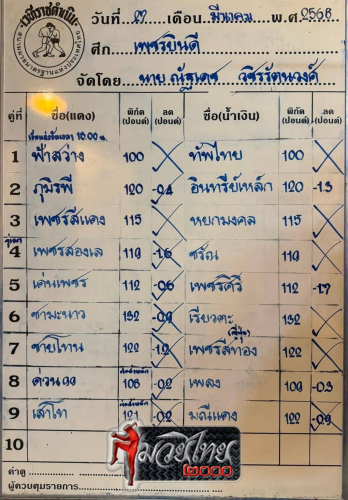 เวทีราชดำเนิน
วันที่ ๒๗ เดือน มีนาคม พ.ศ ๒๕๖๖
ศึก เพชรยินดี
จัดโดย นาย ณัฐเดช วชิรรัตนวงศ์
คู่ที่ ชื่อ(แดง) พิกัด (ปอนด์) ลด (ปอนด์) ชื่อ(น้ำเงิน) พิกัด (ปอนด์) ลด (ปอนด์)
1 ฟ้าสว่าง 100 ทัพไทย 100
2 ภูมิรพี 120 -0.4 อินทรีย์เหล็ก 120 -1.3
3 เพชรสีแดง 115 หยกมงคล 115
4 เพชรสองเล 119 -1.6 119
5 เด่นเพชร 112 -0.6 เพชรคีรี 112 -1.7
6 ซามะนาว 132 -0.9 เรียวตะ 132
(ญี่ปุ่น)
7 ชายโทน 122 -1.2 เพชรสีทอง 122
8 ด่วน99 108 -0.2 เพลง 109 -0.3
9 เสาโท 121 -0.2 มณีแดง 122 -0.9
10
มวยไทย
๒๐๐๐
ค่าดู
ผู้ควบคุมรายการ